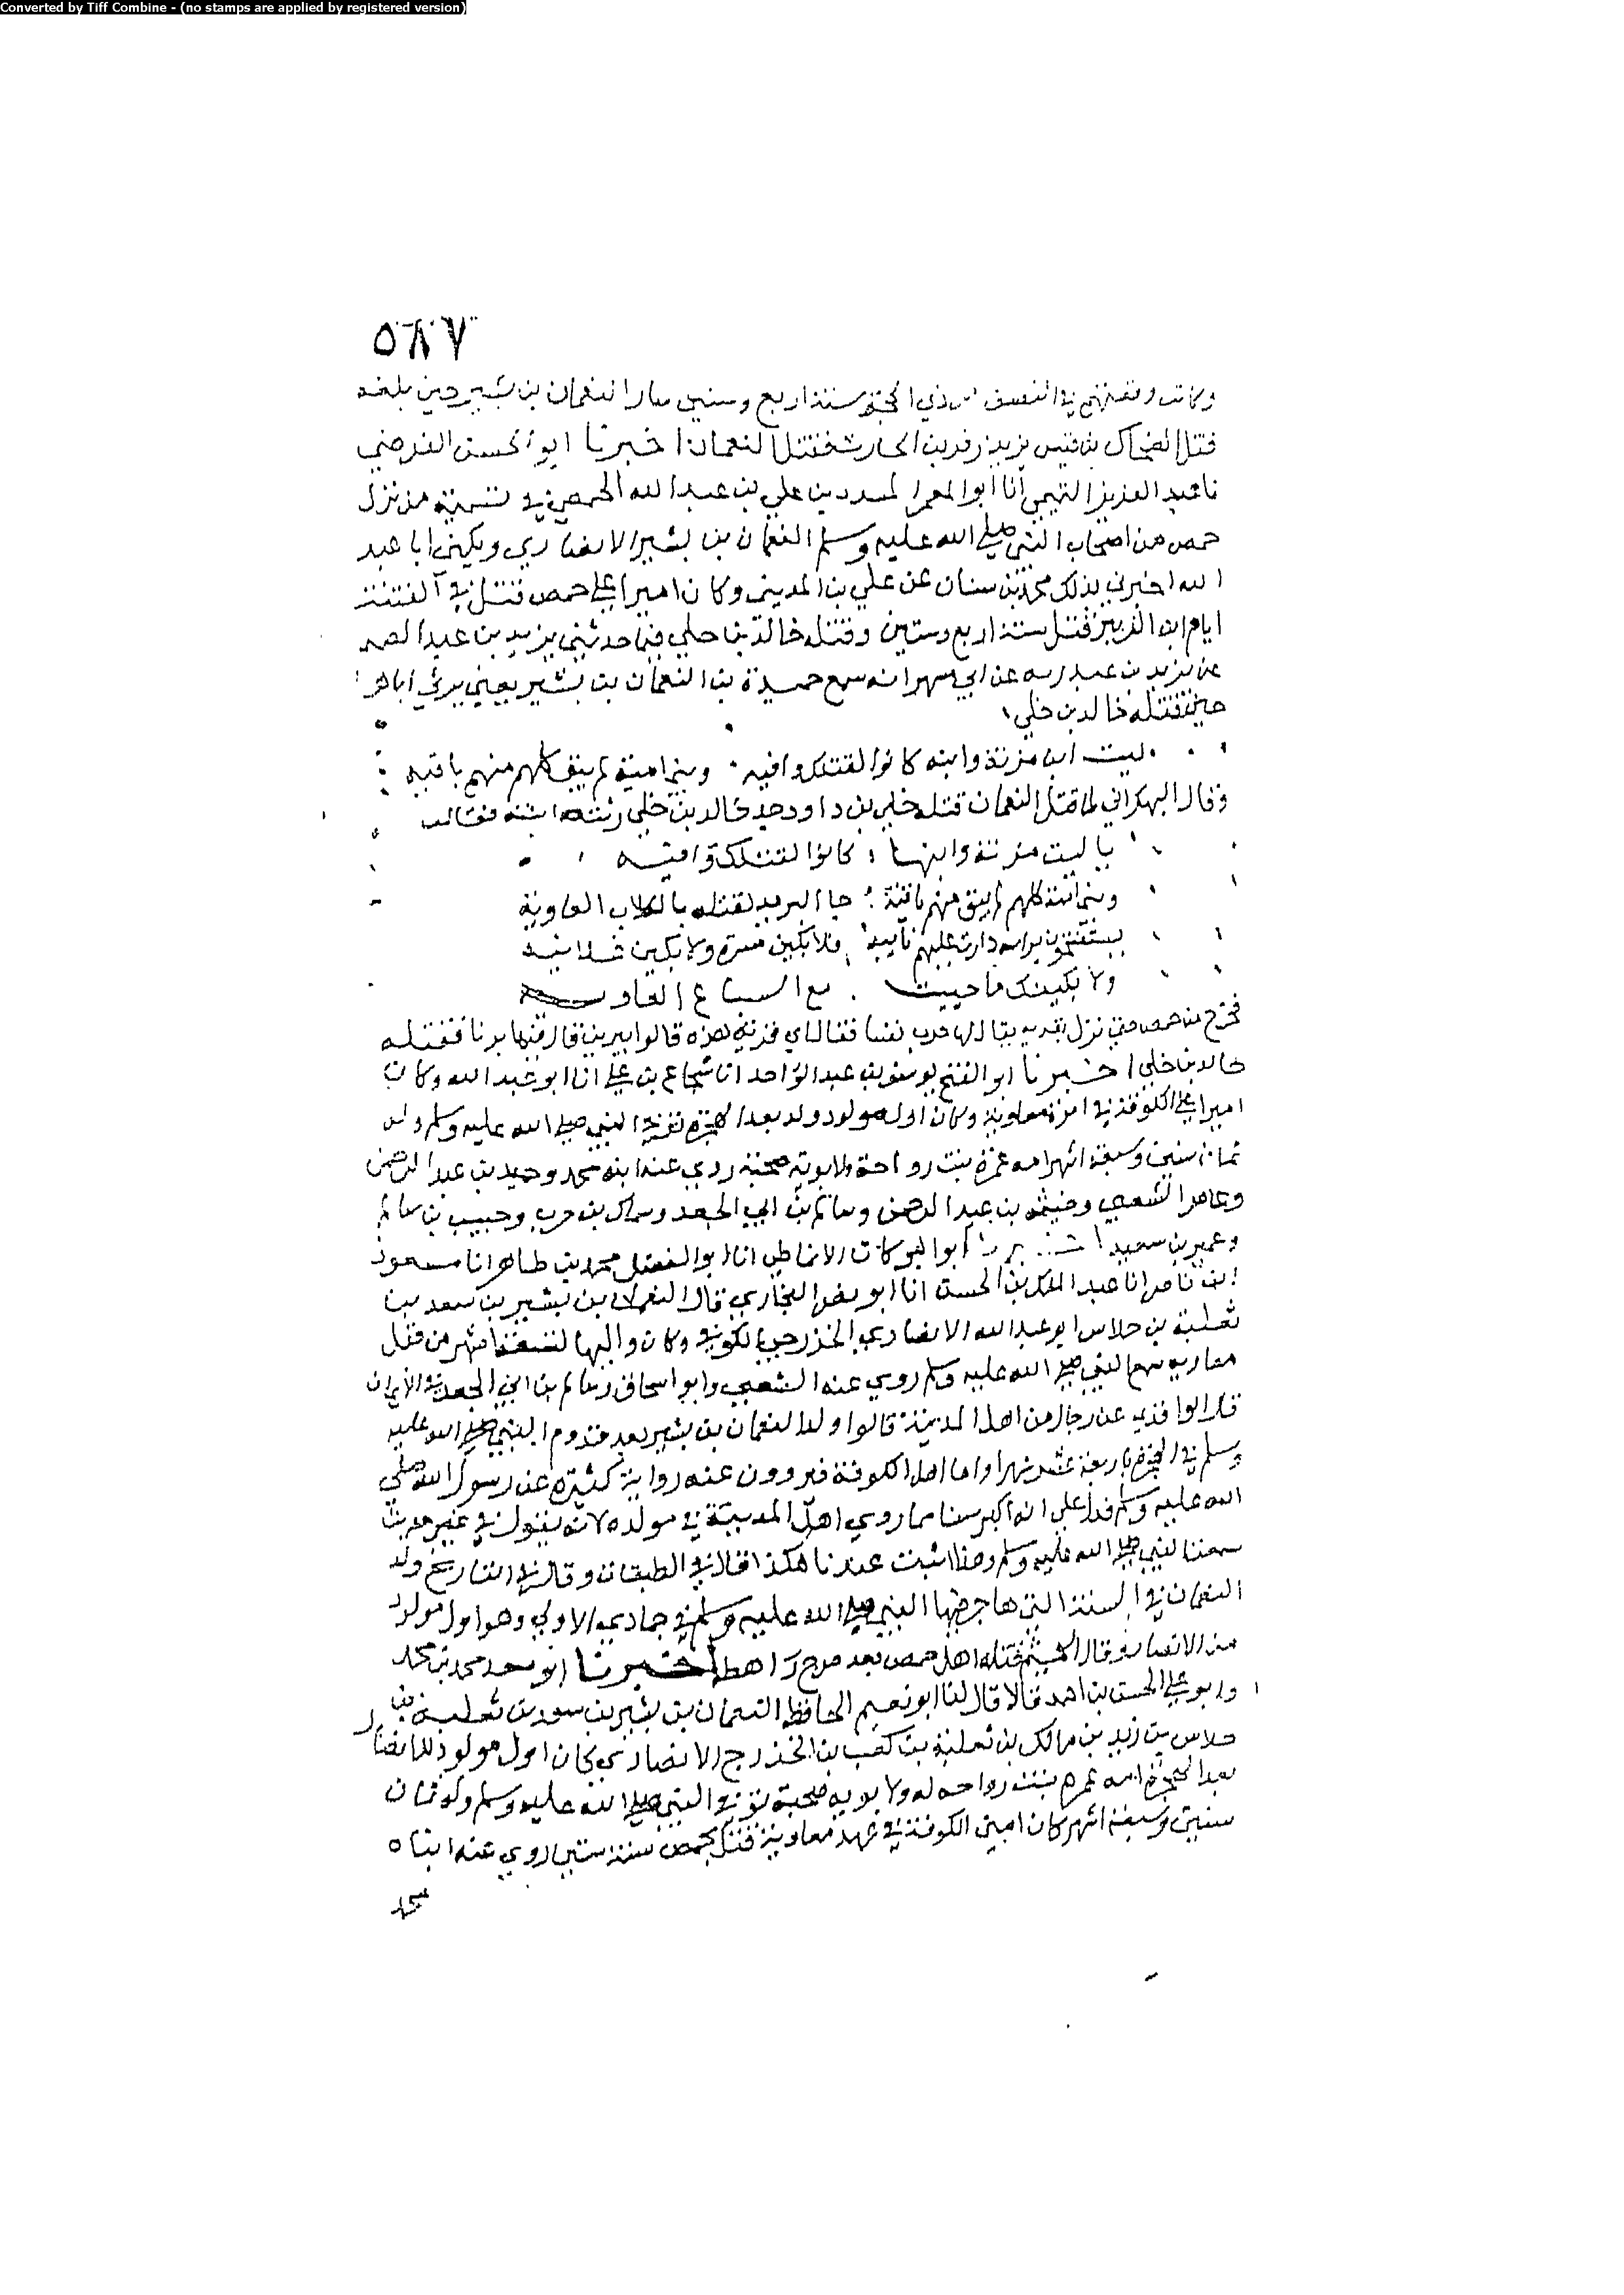 Converted by Tiff Combine - (no stamps are applied by registered version)
٥٨٧
وكانت وقعتهم في النصف من ذي الحجة سنة اربع وستين سار النعمان بن بشير حين بلغه
قتل الضحاك بن قيس يريد زفر بن الحارث فقتل النعمان اخبرنا ابو الحسن الفرضي
نا عبد العزيز التميمي انا ابو المعمر المسدد بن علي بن عبد الله الحمصي في تسمية من نزل
حمص من اصحاب النبي صلى الله عليه وسلم النعمان بن بشير الانصاري ويكنى ابا عبد
الله اخبرني بذلك محمد بن سنان عن علي بن المديني وكان اميرا على حمص قتل في الفتنة
ايام ابن الزبير قتل سنة اربع وستين وقتله خالد بن خلي فيما حدثني يزيد بن عبد الصمد
عن يزيد بن عبد ربه عن ابي مسهر انه سمع حميدة بن النعمان بن بشير يعني يرثي اباها
حين قتله خالد بن خلي
ليت ابن مزنة وابنه كانوا لقتلك وافيه وبني امية لم يبق كلهم منهم باقيه
وقال البهراني لما قتل النعمان قتله خلي بن داود جد خالد بن خلي رثته ابنته فقالت
يا ليت مزنة وابنها كانوا لقتلك واقيه
وبني امية كلهم لم يبق منهم باقية جا البريد لقتله يا للكلاب العاوية
يستفتحون براسه دارت عليهم ثانيه فلا بكين مسرة ولا بكين علانيه
ولا بكينك ما حييت مع السباع العاويه
فخرج من حمص حتى نزل بقرية يقال لها حرب نفسا فقال اي قرية هذه قالوا بيرين قال فيها برنا فقتله
خالد بن خلي اخبرنا ابو الفتح يوسف بن عبد الواحد انا شجاع بن علي انا ابو عبد الله وكان
اميرا على الكوفة في امرة معاوية وكان اول مولود ولد بعد الهجرة توفي النبي صلى الله عليه وسلم وله
ثمان سنين وسبعة اشهر امه عمرة بنت رواحة ولابويه صحبة روى عنه ابنه محمد وحميد بن عبد الرحمن
وعامر الشعبي وخيثمة بن عبد الرحمن وسالم بن ابي الجعد وسماك بن حرب وحبيب بن سالم
وعمير بن سعيد اخبرنا ابو البركات الانماطي انا ابو الفضل محمد بن طاهر انا مسعود
ابن ناصر انا عبد الملك بن الحسن انا ابو نصر البخاري قال النعمان بن بشير بن سعد بن
ثعلبة بن جلاس ابو عبد الله الانصاري الخزرجي الكوفي وكان واليها لتسعة اشهر من قبل
معاوية سمع النبي صلى الله عليه وسلم روى عنه الشعبي وابو اسحاق وسالم بن ابي الجعد في الايمان
قال الواقدي عن رجال من اهل المدينة قالوا ولد النعمان بن بشير بعد قدوم النبي صلى الله عليه
وسلم في الهجرة باربعة عشر شهرا واما اهل الكوفة فيروون عنه رواية كثيرة عن رسول الله صلى
الله عليه وسلم فدل على انه اكبر سنا مما روى اهل المدينة في مولده لانه يقول في غير حديث
سمعت النبي صلى الله عليه وسلم وهذا اثبت عندنا هكذا قال في الطبقات وقال في التاريخ ولد
النعمان في السنة التي هاجر فيها النبي صلى الله عليه وسلم في جمادي الاولى وهو اول مولود
من الانصار وقال الهيثم قتله اهل حمص بعد مرج راهط اخبرنا ابو سعد محمد بن محمد
وابو علي الحسن بن احمد قالا قال لنا ابو نعيم الحافظ النعمان بن بشير بن سعد بن ثعلبة بن
جلاس بن زيد بن مالك بن ثعلبة بن كعب بن الخزرج الانصاري كان اول مولود للانصار
بعد الهجرة امه عمرة بنت رواحه له ولابويه صحبة توفي النبي صلى الله عليه وسلم وله ثمان
سنين وسبعة اشهر كان امير الكوفة في عهد معاوية قتل بحمص سنة ستين روى عنه ابناه
محمد